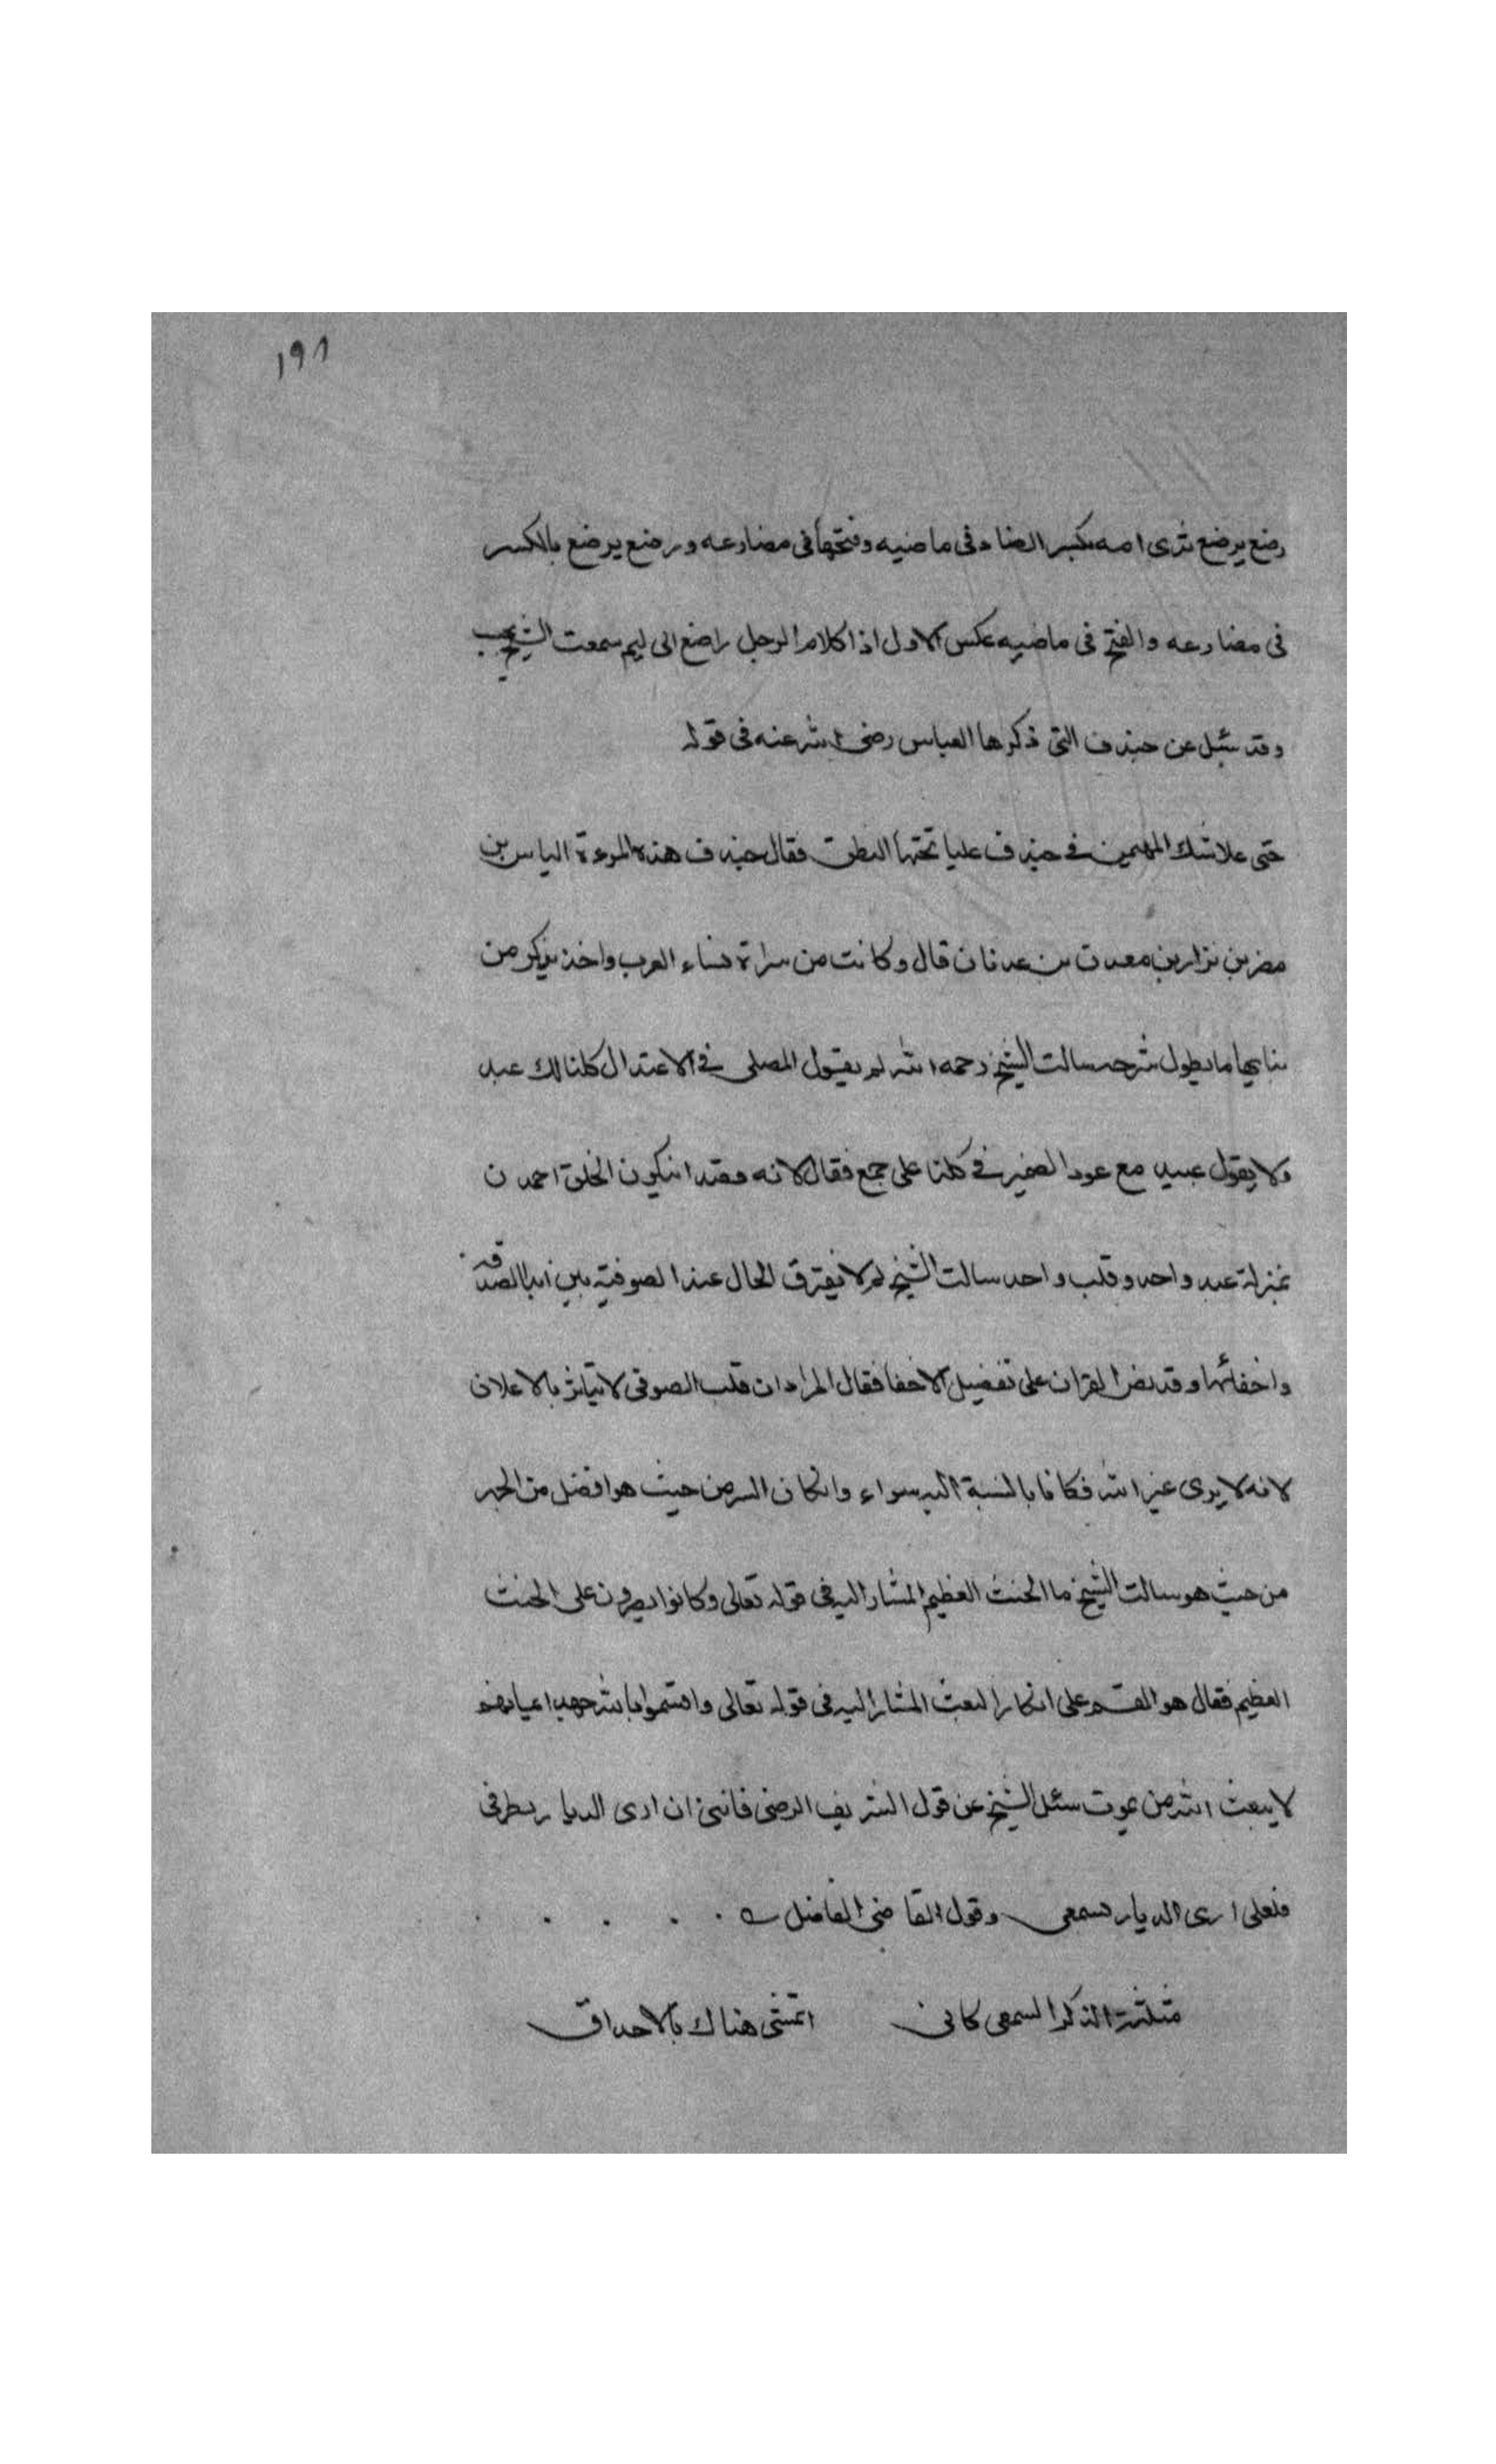 ١٩٨
رضع يرضع ثدى امه بكسر الضاد فى ماضيه وفتحها فى مضارعه ورضع يرضع بالكسر
فى مضارعه والفتح فى ماضيه عكس الاول اذا كلام الرجل راضع الى ليم سمعت الشيخ يجيب
وقد سئل عن خندف التى ذكرها العباس رضى الله عنه فى قوله
حتى علا بيتك المهيمن فى خندف عليا تحتها النطق فقال خندف هذه المرءة الياس بن
مضر بن نزار بن معد بن عدنان قال وكانت من سراة نساء العرب واخذ يذكر من
ما يطول شرحه سالت الشيخ رحمه الله لم يقول المصلى فى الاعتدال كلنا لك عبد
ولا يقول عبيد مع عود الضمير فى كلنا على جمع فقال لانه قصد ان يكون الخلق اجمعون
بمنزلة عبد واحد وقلب واحد سالت الشيخ لم لا يفترق الحال عند الصوفية بين ابدا الصدقة
واخفائها وقد نص القران على تفضيل الاخفا فقال المراد ان قلب الصوفى لا يتاثر بالاعلان
لانه لا يرى غير الله فكانا بالنسبة اليه سواء وان كان السر من حيث هو افضل من الجهر
من حيث هو سالت الشيخ ما الحنث العظيم المشار اليه فى قوله تعالى وكانوا يصرون على الحنث
العظيم فقال هو القسم على انكار البعث المشار اليه فى قوله تعالى واقسموا بالله جهد ايمانهم
لا يبعث الله من يموت سئل الشيخ عن قول الشريف الرضى فاتنى ان ارى الديار بطرفى
فلعلى ارى الديار بسمعى وقول القاضى الفاضل
مثلته الذكرا لسمعى كانى اتمشى هناك بالاحداق